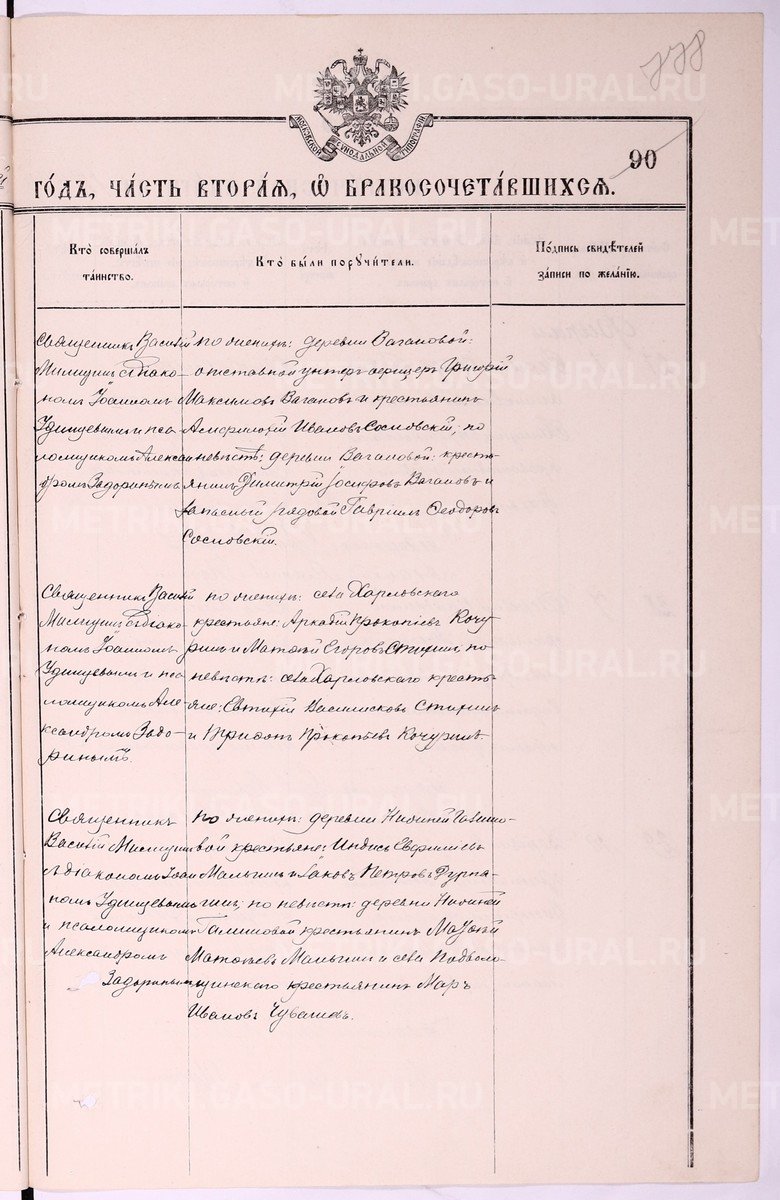 778
МОСКОВСКОЙ СѴНОДАЛЬНОЙ ТИПОГРАФІИ
90
ГОДЪ, ЧАСТЬ ВТОРАЯ, Ѡ БРАКОСОЧЕТАВШИХСЯ.
Кто совершалъ
таинство.
Кто были поручители.
Подпись свидѣтелей
записи по желанію.
Священникъ Василій
Милицинъ съ діако-
номъ Іоанномъ
Удинцевымъ и пса-
ломщикомъ Алексан
дромъ Задоринымъ
по женихѣ: деревни Вагановой:
отставной унтеръ-офицеръ Григорій
Максимовъ Вагановъ и крестьянинъ
Ивановъ Сосновскій; по
невѣстѣ: деревни Вагановой: кресть-
янинъ Димитрій Іосифовъ Вагановъ и
запасный рядовой Гавріилъ Ѳеодоровъ
Сосновскій.
Священникъ Василій
Милицинъ съ діако-
номъ Іоанномъ
Удинцевымъ и пса-
ломщикомъ Але-
ксандромъ Задо-
ринымъ.
по женихѣ: села Харловскаго
крестьяне: Аркадій Прокопіевъ Кочу
ринъ и Матѳей Егоровъ Стихинъ по
невѣстѣ: села Харловскаго кресть-
яне: Евтихій Стихинъ
и Прокопьевъ Кочуринъ.
Священникъ
Василій Милицинъ
съ діакономъ Іоан
номъ Удинцевымъ
и псаломщикомъ
Александромъ
Задоринымъ
по женихѣ: деревни Нижней Галишо-
вой крестьяне:
Мальгинъ и Іаковъ Петровъ
по невѣстѣ: деревни Нижней
Галишовой крестьянинъ
Матѳеевъ Мальгинъ и села Подволо-
шинскаго крестьянинъ
Ивановъ Чувашовъ.
METRIKI.GASO-URAL.RU